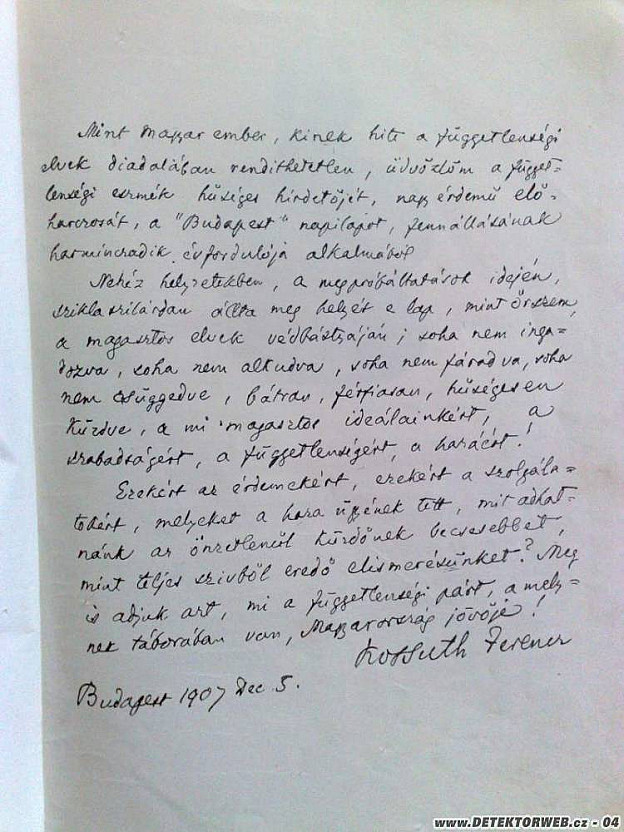 Mint magyar ember, kinek hite a függetlenségi
elvek diadalában rendithetetlen, üdvözlöm a függet-
lenségi eszmék hűséges hirdetőjét, nagy érdemű elő-
harczosát, a "Budapest" napilapot, fennállásának
harminczadik évfordulója alkalmából
Nehéz helyzetekben, a megpróbáltatások idején,
sziklaszilárdan állta meg helyét e lap, mint őrszem,
a magasztos elvek védbástyáján; soha nem inga-
dozva, soha nem alkudva, soha nem fáradva, soha
nem csüggedve, bátran, férfiasan, hűségesen
küzdve, a mi magasztos ideálainkért, a
szabadságért, a függetlenségért, a hazáért!
Ezekért az érdemekért, ezekért a szolgála=
tokért, melyeket a haza ügyének tett, mit adhat-
nánk az önzetlenül küzdőnek becsesebbet,
mint teljes szivből eredő elismerésünket? Meg
is adjuk azt, mi a függetlenségi párt, a mely=
nek táborában van, Magyarország jövője!
Kossuth Ferencz
Budapest 1907 Dec 5.
www.DETEKTORWEB.cz - 04